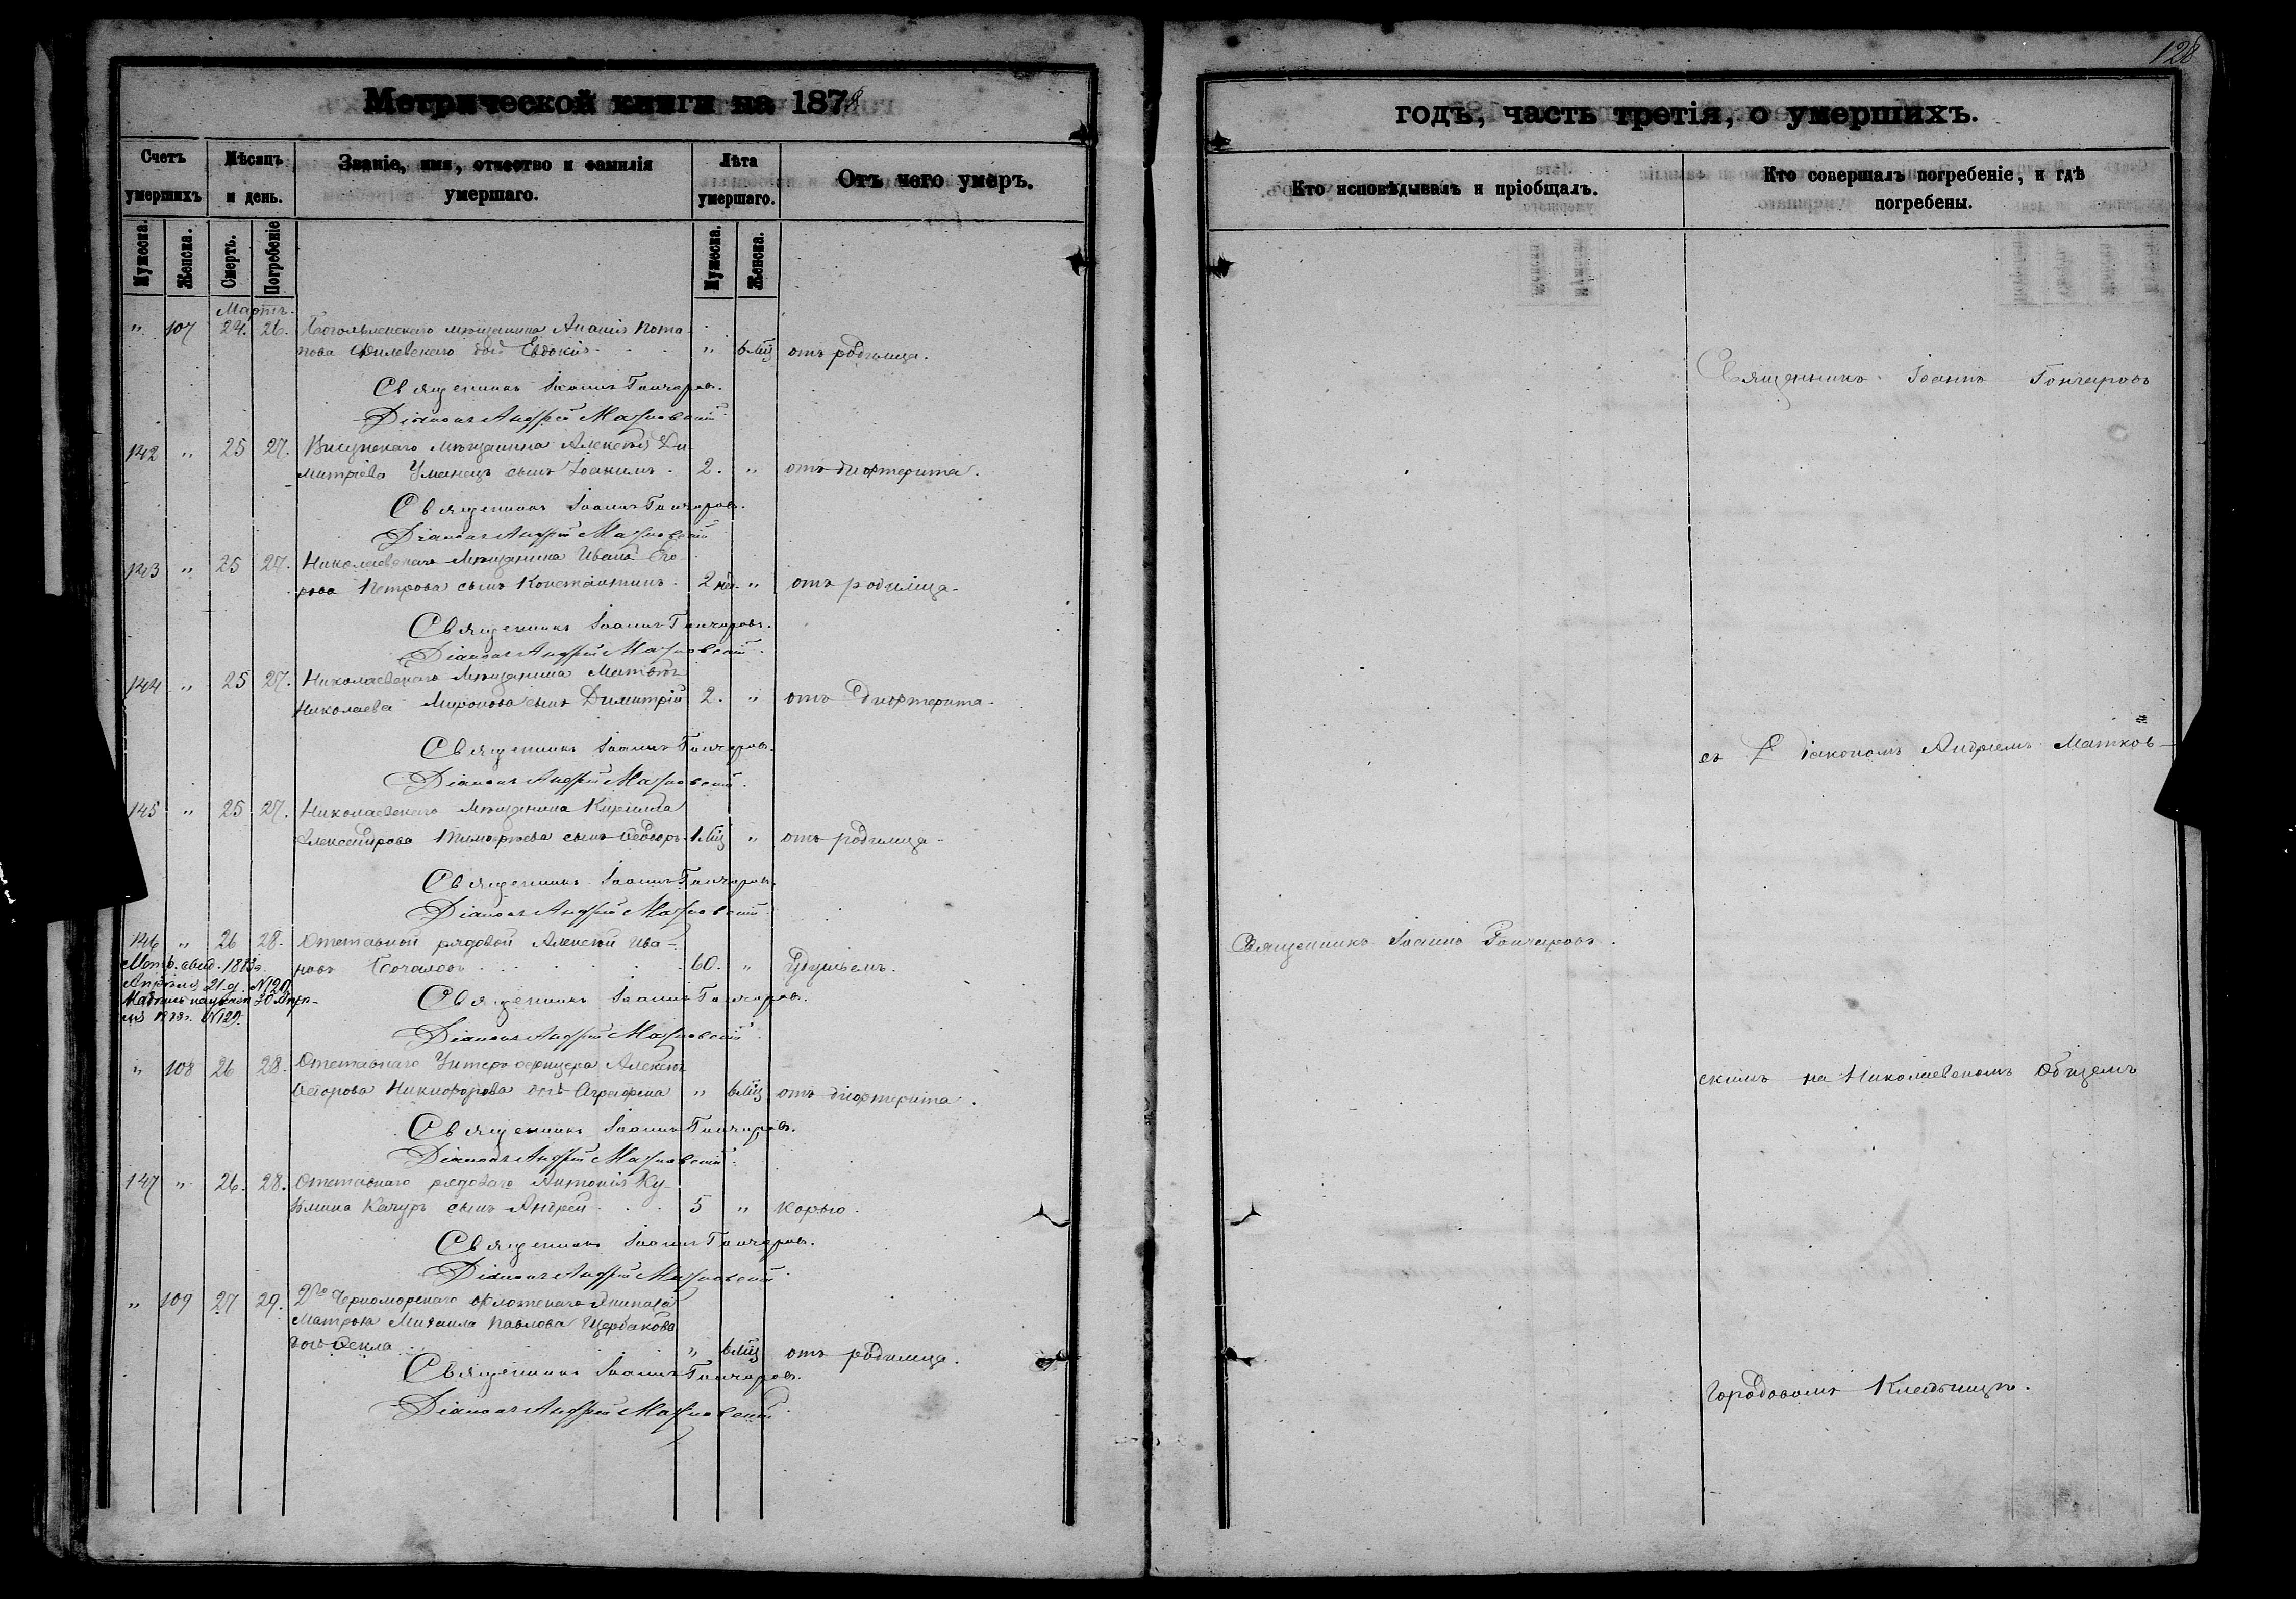 128
Метрической книги на 1878
годъ, часть третія, о умершихъ.
Счетъ умершихъ
Мѣсяцъ и день.
Званіе, имя, отчество и фамилія умершаго.
Лѣта умершаго.
Отъ чего умеръ.
Кто исповѣдывалъ и пріобщалъ.
Кто совершалъ погребеніе, и гдѣ погребены.
Мужеска.
Женска.
Смерть.
Погребеніе
Мужеска.
Женска.
Мартъ.
" 107 24. 26. мѣщанина Ананія Пота-
пова дочь Евдокія " 6 Мц отъ родимца.
Священникъ Іоаннъ Гончаровъ.
Діаконъ Андрей Матковскій
142 " 25 27. мѣщанина Алексѣя Ди-
митріева Уманецъ сынъ Іоакимъ. 2. " отъ дифтерита.
Священникъ Іоаннъ Гончаровъ.
Діаконъ Андрей Матковскій
143 " 25 27. Николаевскаго Мѣщанина Ивана Его-
рова Петрова сынъ Константинъ. 2 нед. " отъ родимца.
Священникъ Іоаннъ Гончаровъ.
Діаконъ Андрей Матковскій.
144 " 25 27. Николаевскаго Мѣщанина Матвѣя
Николаева Миронова сынъ Димитрій 2. " отъ дифтерита.
Священникъ Іоаннъ Гончаровъ.
Діаконъ Андрей Матковскій.
145 " 25 27. Николаевскаго Мѣщанина Кирилла
Александрова Тимофѣева сынъ Ѳеодоръ. 1 Мц " отъ родимца.
Священникъ Іоаннъ Гончаровъ.
Діаконъ Андрей Матковскій
146 " 26 28. Отставной рядовой Алексѣй Ива-
новъ 60. " Удушьемъ.
Священникъ Іоаннъ Гончаровъ.
Діаконъ Андрей Матковскій
" 108 26 28. Отставнаго Унтеръ офицера Алексѣя
Ѳедорова Никифорова дочь Аграфена " 6 Мц отъ дифтерита.
Священникъ Іоаннъ Гончаровъ.
Діаконъ Андрей Матковскій.
147 " 26. 28. Отставнаго рядоваго Антонія Ку-
зьмина Качуръ сынъ Андрей 5 " Корью.
Священникъ Іоаннъ Гончаровъ.
Діаконъ Андрей Матковскій
" 109 27 29. 2го Черноморскаго флотскаго Экипажа
Матроса Михаила Павлова Щербакова
дочь Ѳекла " 6 Мц отъ родимца.
Священникъ Іоаннъ Гончаровъ.
Діаконъ Андрей Матковскій
Священникъ Іоаннъ Гончаровъ.
Священникъ Іоаннъ Гончаровъ
съ Діакономъ Андреемъ Матков-
скимъ на Николаевскомъ Общемъ
Городовомъ Кладбищѣ.